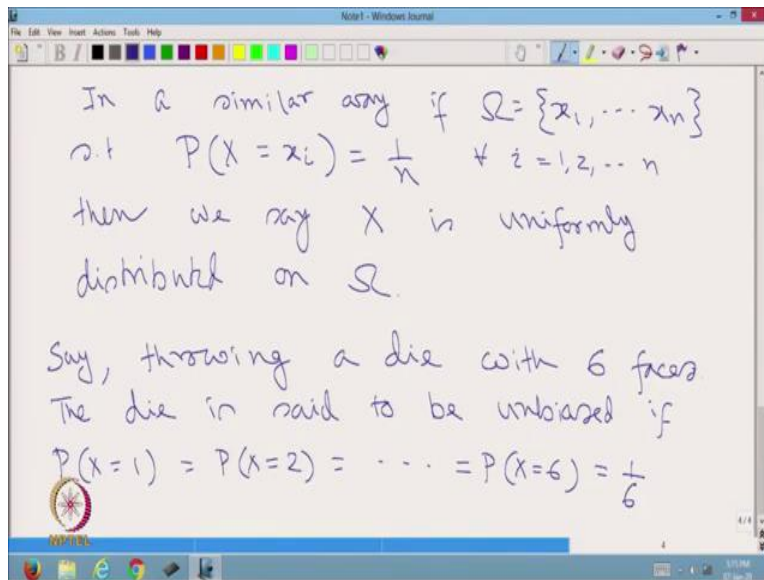 Note1 - Windows Journal
File Edit View Insert Actions Tools Help
B I
In a similar way if Ω = {x₁, ⋯ xₙ}
s.t P(X = xᵢ) = 1/n ∀ i = 1, 2, ⋯ n
then we say X is uniformly
distributed on Ω.
Say, throwing a die with 6 faces
The die is said to be unbiased if
P(X = 1) = P(X = 2) = ⋯ = P(X = 6) = 1/6
NPTEL
4/4
4